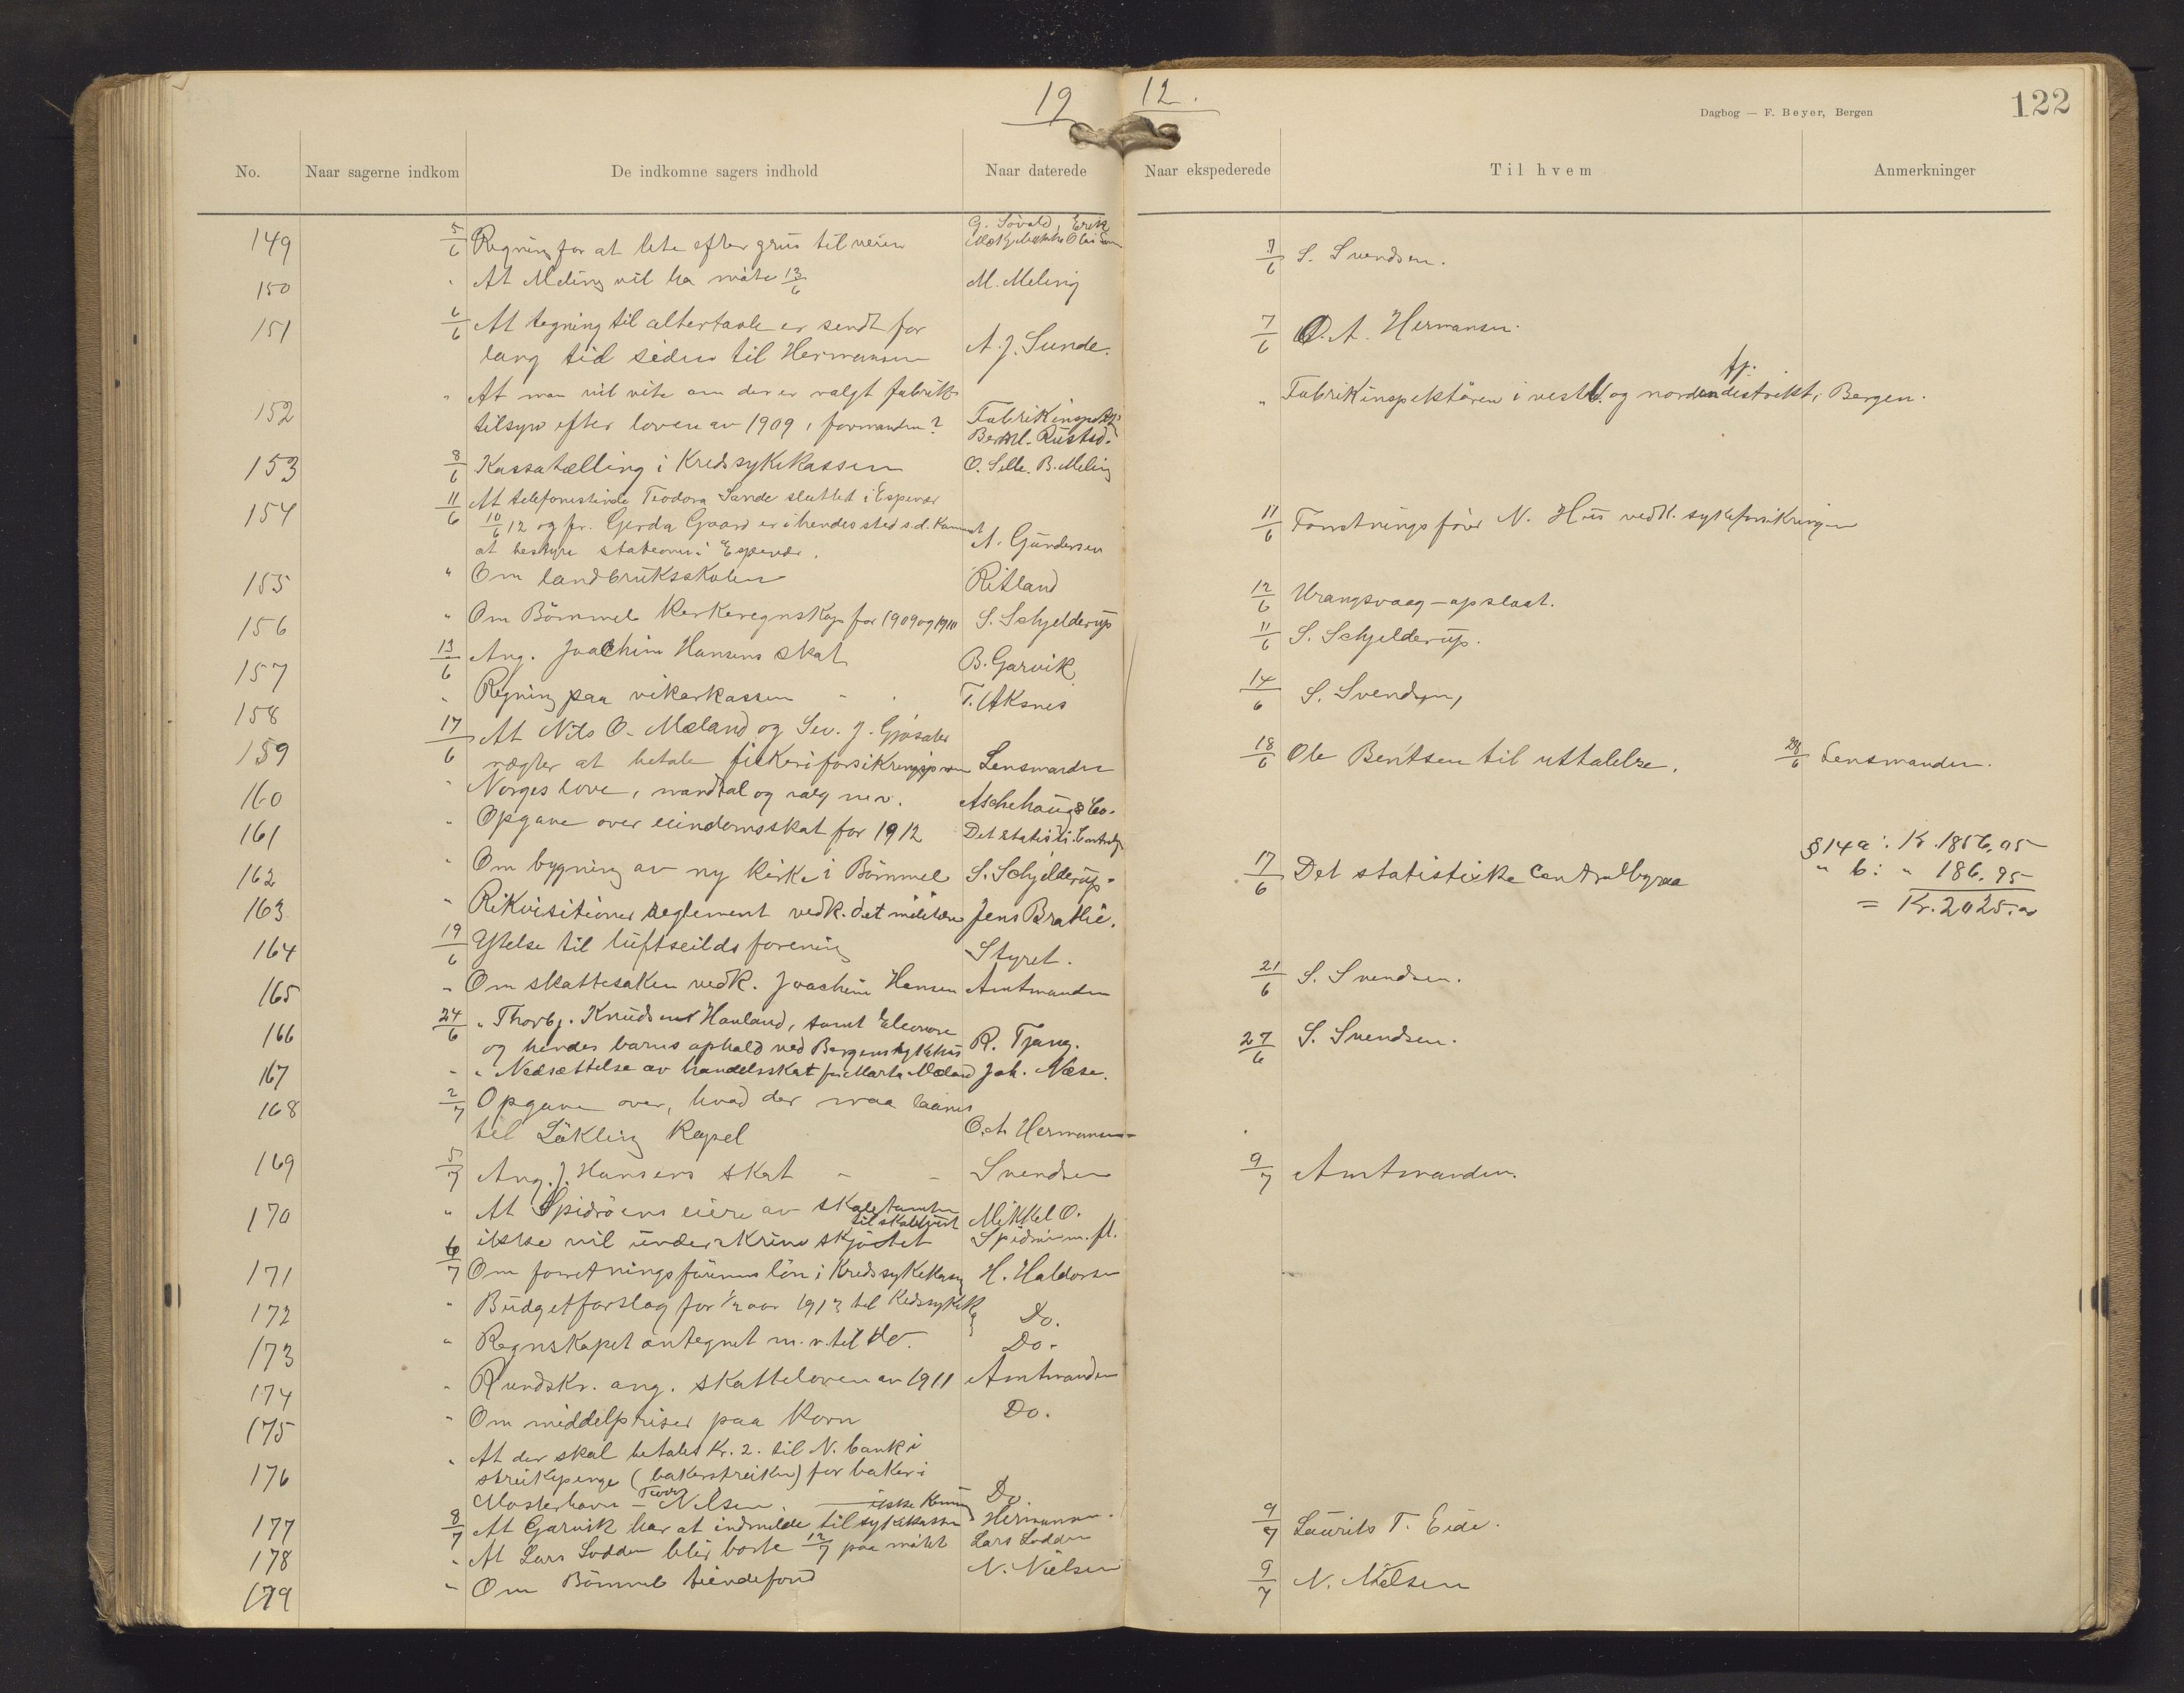 19 12.
Dagbog — F. Beyer, Bergen
122
No. Naar sagerne indkom De indkomne sagers indhold Naar daterede Naar ekspederede Til hvem Anmerkninger
149 5/6 Regning for at lete efter grus til veien G. Sövold, Erik
7/6 S. Svendsen.
150 " At Meling vil ha möte 13/6 M. Meling
151 6/6 At tegning til altertavle er sendt for
lang tid siden til Hermansen A. J. Sunde. 7/6 O. A. Hermansen.
152 " At man vil vite om der er valgt fabrik-
tilsyn efter loven av 1909, formanden? Fabrikinsp.
Rustad. " Fabrikinspektören i vestl. og nordenf. distrikt, Bergen.
153 8/6 Kassatælling i Kredssykekassen O. Selle. B. Meling
154 11/6 At telefonistinde Teodora Sande sluttet i Espevær
10/6 12 og fr. Gerda Gaard er i hendes sted s.d. kommet
at bestyre stationen i Espevær. A. Gundersen 11/6 Forretningsförer N. Hus vedk. sykeforsikringen
155 " Om landbruksskolen Ritland 12/6 Vrangsvaag - opslaat.
156 " Om Bömmel kirkeregnskap for 1909 og 1910 S. Schjelderup 11/6 S. Schjelderup.
157 13/6 Ang. Joachim Hansens skat B. Garvik 14/6 S. Svendsen,
158 " Regning paa vikarkassen T. Aksnes
159 17/6 At Nils O. Mæland og Sev. J. Gjösæter
nægter at betale fiskeriforsikringsprem Lensmanden 18/6 Ole Bentsen til uttalelse. 28/6 Lensmanden.
160 " Norges love, mandtal og valg m.v. Aschehoug & Co.
161 " Opgave over eiendomsskat for 1912 Det statisti. Centralb. 17/6 Det statistiske Centralbyraa § 14 a: Kr. 1856,05
" b: " 186.95
= Kr. 2025.00
162 " Om bygning av ny kirke i Bömmel S. Schjelderup.
163 " Rikvisitioner reglement vedk. det militære Jens Bratlie.
164 19/6 Ytelse til luftseildsforening Styret.
165 " Om skattesaken vedk. Joachim Hansen Amtmanden 21/6 S. Svendsen.
166 24/6 " Thorbj. Knudsens Hauland, samt Eleonore
og hendes barns ophold ved Bergens sykehus R. Tjang. 27/6 S. Svendsen.
167 " " Nedsættelse av handelsskat for Marta Mæland Joh. Næse.
168 2/7 Opgave over, hvad der maa laanes
til Lökling Kapel O. A. Hermansen
169 5/7 Ang. J. Hansens skat - - Svendsen 9/7 Amtmanden.
170 " At Spidsöens eiere av skoletomten
til skolehuset
ikke vil underskrive skjötet Mikkel O.
Spidsöen m. fl.
171 6/7 Om forretningsförerens lön i Kredssykekasse H. Haldorsen
172 " Budgetforslag for 1/2 aar 1913 til Kredssykek. Do.
173 " Regnskapet antegnet m. v. til do. Do.
174 " Rundskr. ang. skatteloven av 1911 Amtmanden
175 " Om middelpriser paa korn Do.
176 " At der skal betales Kr. 2. til N. bank i
streikepenge (bakerstreiken) for baker i
Mosterhavn - Nilsen. Do.
177 8/7 At Garvik har at indmelde til sykekassen Hermansen. 9/7 Laurits T. Eide.
178 " At Lars Lodden blir borte 12/7 paa mötet Lars Lodden
179 " Om Bömmel tiendefond N. Nielsen 9/7 N. Nielsen